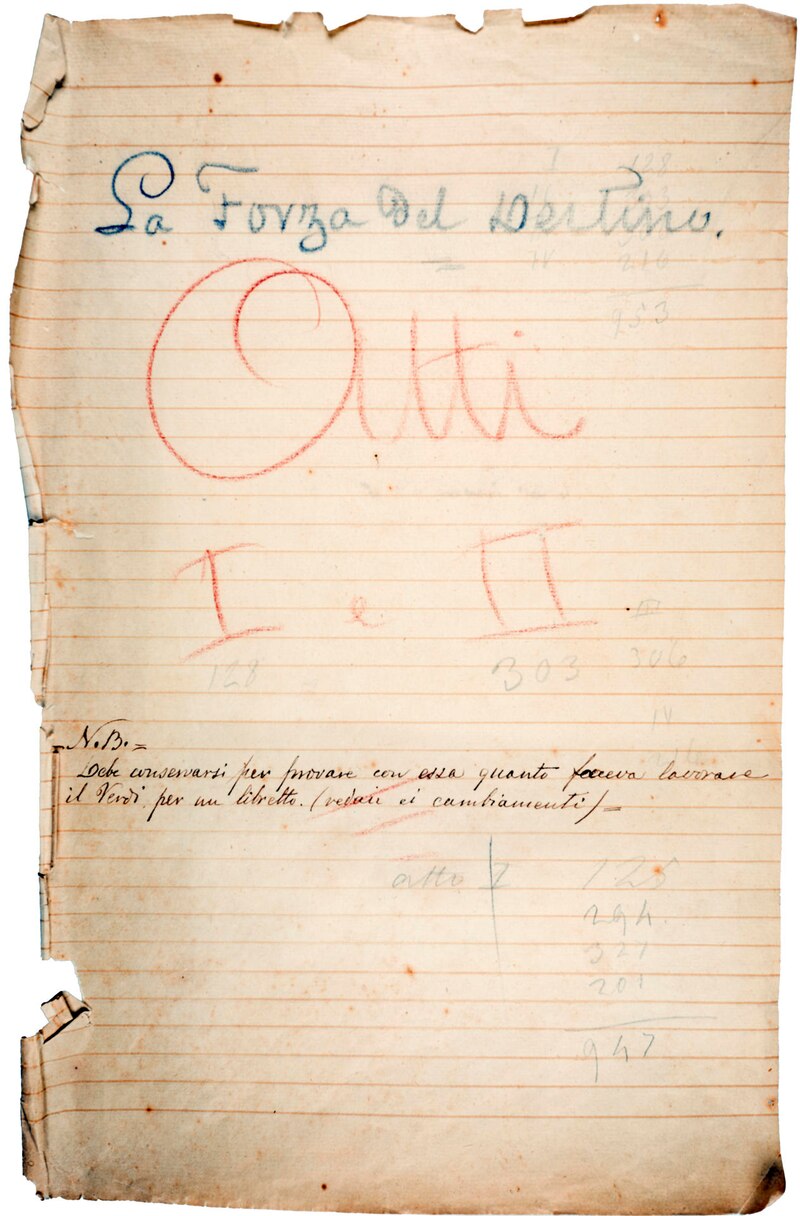 La Forza del Destino.
I 128
IV 210
953
Atti
I e II
128 303
III
306
IV
N.B. =
Debe conservarsi per provare con essa quanto faceva lavorare
il Verdi, per un libretto. (vedasi ei cambiamenti) =
atto I 125
294
321
201
947